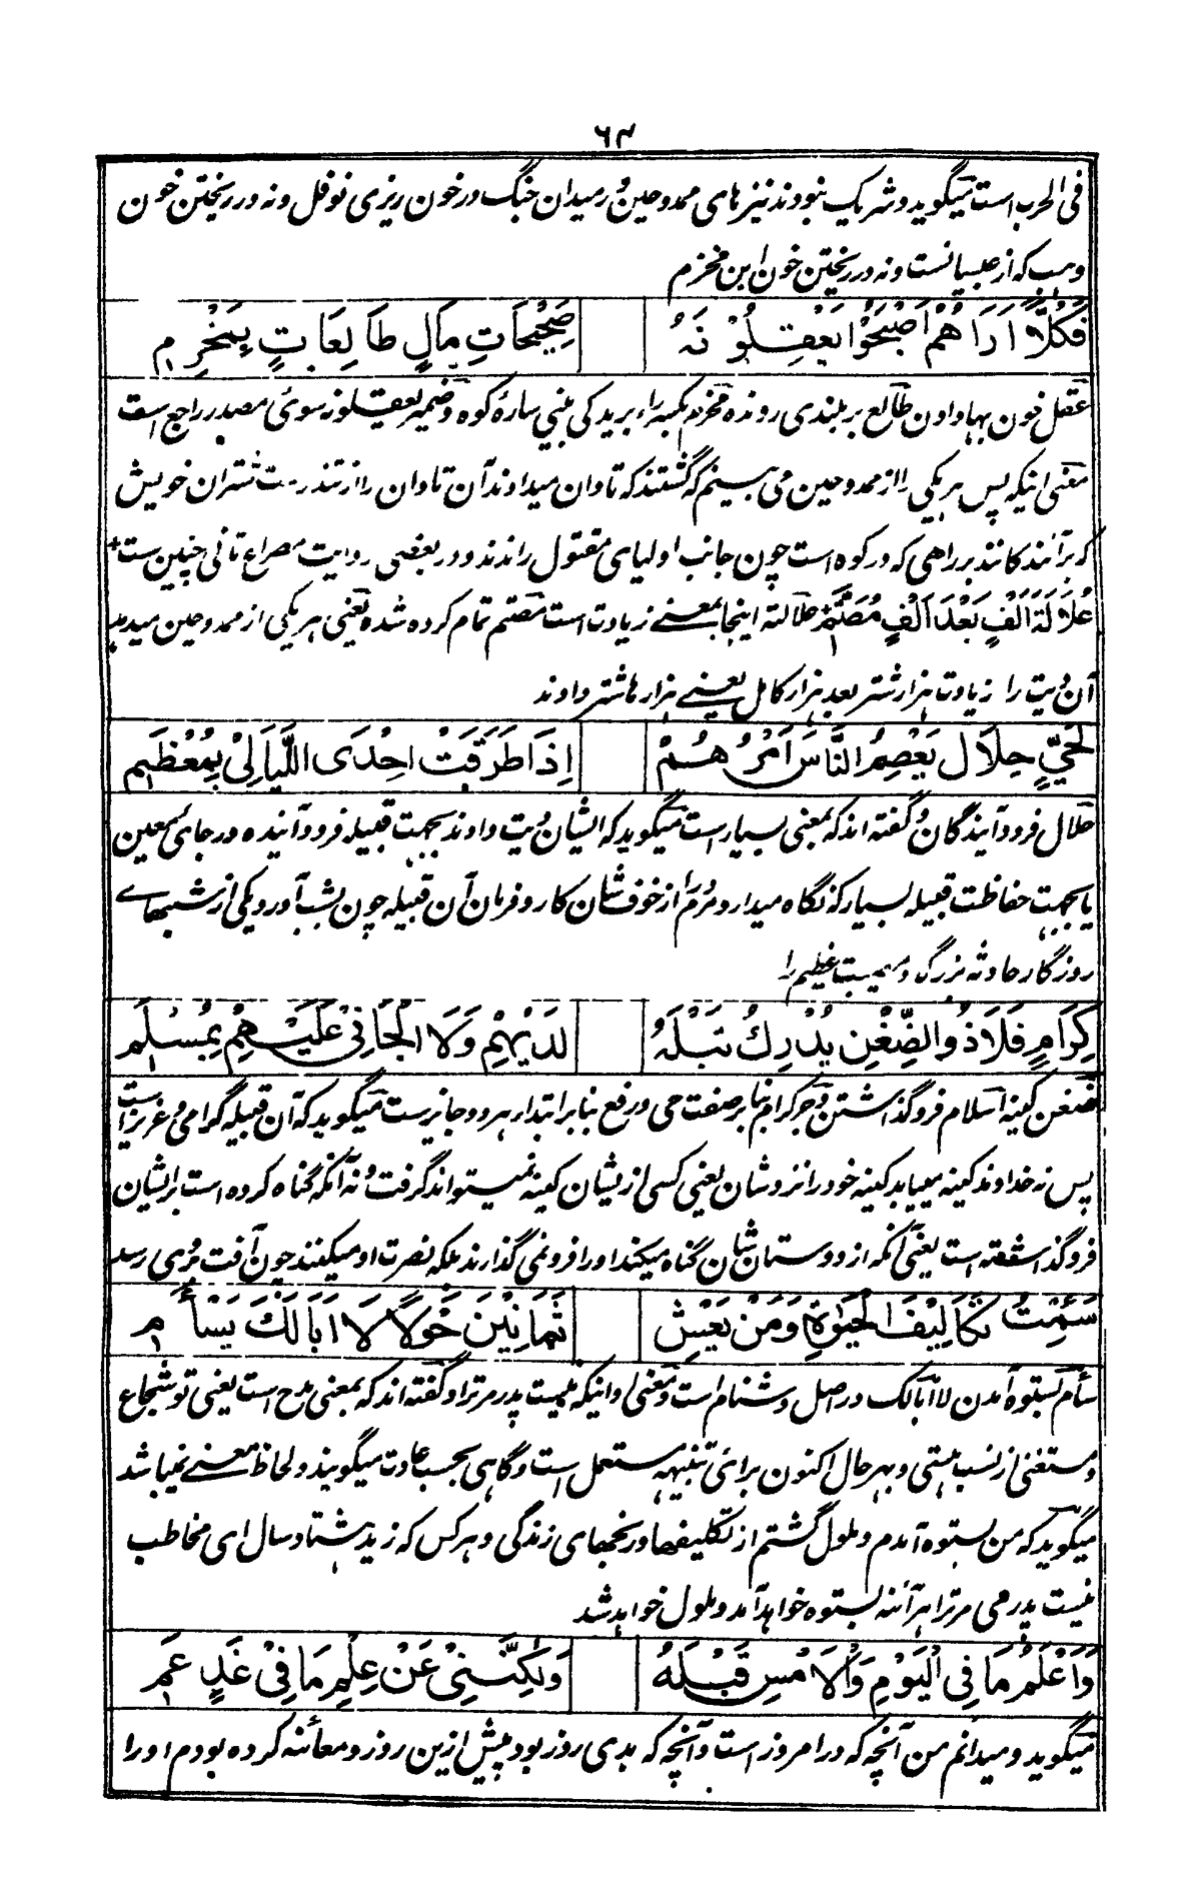 ۶۳
فی الحرب است میگوید و شریک نبودند نیزهای ممدوحین در میدان جنگ در خون ریزی نوفل و نه در ریختن خون
وهب که از عبسیانست و نه در ریختن خون ابن مخزم
فَكُلًّا اَرَاهُمْ اَصْبَحُوْا يَعْقِلُوْنَهُ صَحِيْحَاتِ مَالٍ طَالِعَاتٍ بِمَخْرِمِ
عقل خون بها دادن طالع بر بلندی رونده مخرم بکسر راء بریدگی بینی ساره کوه و ضمیر یعقلونه سوئ مصدر راجع است
معنی اینکه پس هر یکی را از ممدوحین می بینم که گشتند که تاوان میدادند آن تاوان را از تندرست شتران خویش
که برآئندگانند براهی که در کوه است چون جانب اولیای مقتول راندند و در بعضی روایت مصراع ثانی چنین ست
عُلَالَةَ اَلْفٍ بَعْدَ اَلْفٍ مُصَتَّمِ علالته اینجا بمعنے زیادت است مصتم تمام کرده شده یعنی هر یکی از ممدوحین میدید
آن دیت را زیادت هزار شتر بعد هزار کامل یعنے هزارها شتر دادند
لِحَيٍّ حِلَالٍ يَعْصِمُ النَّاسَ اَمْرُهُمْ اِذَا طَرَقَتْ اِحْدَى اللَّيَالِیْ بِمُعْظَمِ
حلال فرود آیندگان و گفته اند که بمعنی بسیار است میگوید که ایشان دیت دادند بجهت قبیله فرود آینده در جای معین
یا بجهت حفاظت قبیله بسیار که نگاه میدارد مردم را از خوف شان کار و فرمان آن قبیله چون بشب آورد یکی از شبهاے
روزگار حادثه بزرگ و مصیبت عظیم را
كِرَامٍ فَلَا ذُو الضِّغْنِ يُدْرِكُ تَبْلَهُ لَدَيْهِمْ وَلَا الْجَانِیْ عَلَيْهِمْ بِمُسْلَمِ
ضغن کینه اسلام فرو گذاشتن و جر کرام بنابر صفت حی و رفع بنا بر ابتدا هر دو جائزست میگوید که آن قبیله گرامی و عزیز است
پس نه خداوند کینه مییابد کینه خود را نزد شان یعنی کسی از یشان کینه نمیتواند گرفت و نه آنکه گناه کرده است بر ایشان
فرو گذاشته است یعنی آنکه از دوستان شان گناه میکند او را فرو نمی گذارند بلکه نصرت او میکنند چون آفت بروی رسد
سَئِمْتُ تَكَالِيْفَ الْحَيٰوةِ وَمَنْ يَّعِشْ ثَمَانِيْنَ حَوْلًا لَا اَبَا لَكَ يَسْأَمِ
سأم بستوه آمدن لا ابا لک در اصل دشنام است و معنی او اینکه نیست پدر مر ترا و گفته اند که بمعنی مدح است یعنی تو شجاع
و مستغنی از نسب هستی و بهر حال اکنون برای تنبیه مستعمل است و گاهی بحسب عادت میگویند و لحاظ معنے نمیباشد
میگوید که من بستوه آمدم و ملول گشتم از تکلیفها و رنجهای زندگی و هر کس که زید هشتاد سال ای مخاطب
نیست پدرمی مر ترا هر آئنه بستوه خواهد آمد و ملول خواهد شد
وَاَعْلَمُ مَا فِی الْيَوْمِ وَالْاَمْسِ قَبْلَهُ وَلٰكِنَّنِیْ عَنْ عِلْمِ مَا فِیْ غَدٍ عَمِ
میگوید و میدانم من آنچه که در امروز است و آنچه که بدی روز بود پیش ازین روز و معائنه کرده بودم او را